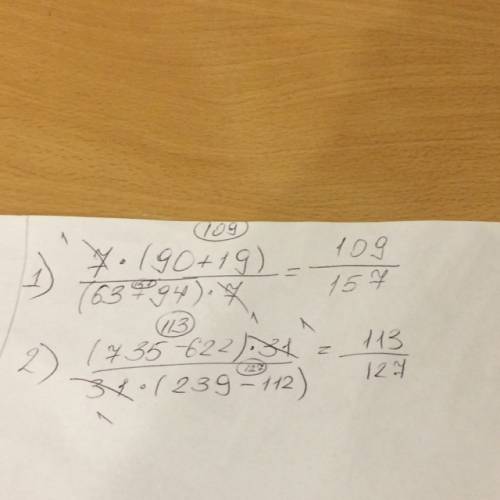 109
1) 7 · (90 + 19) / (63 + 94) · 7 = 109 / 157
113
2) (735 - 622) · 31 / 31 · (239 - 112) = 113 / 127
127